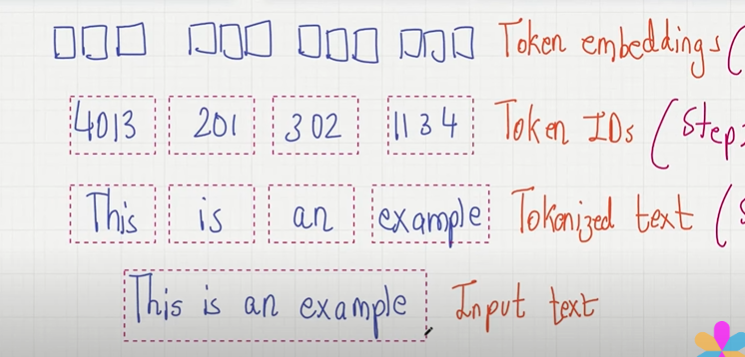 Token embeddings (
4013 201 302 1134 Token IDs (Step
This is an example Tokenized text (
This is an example Input text